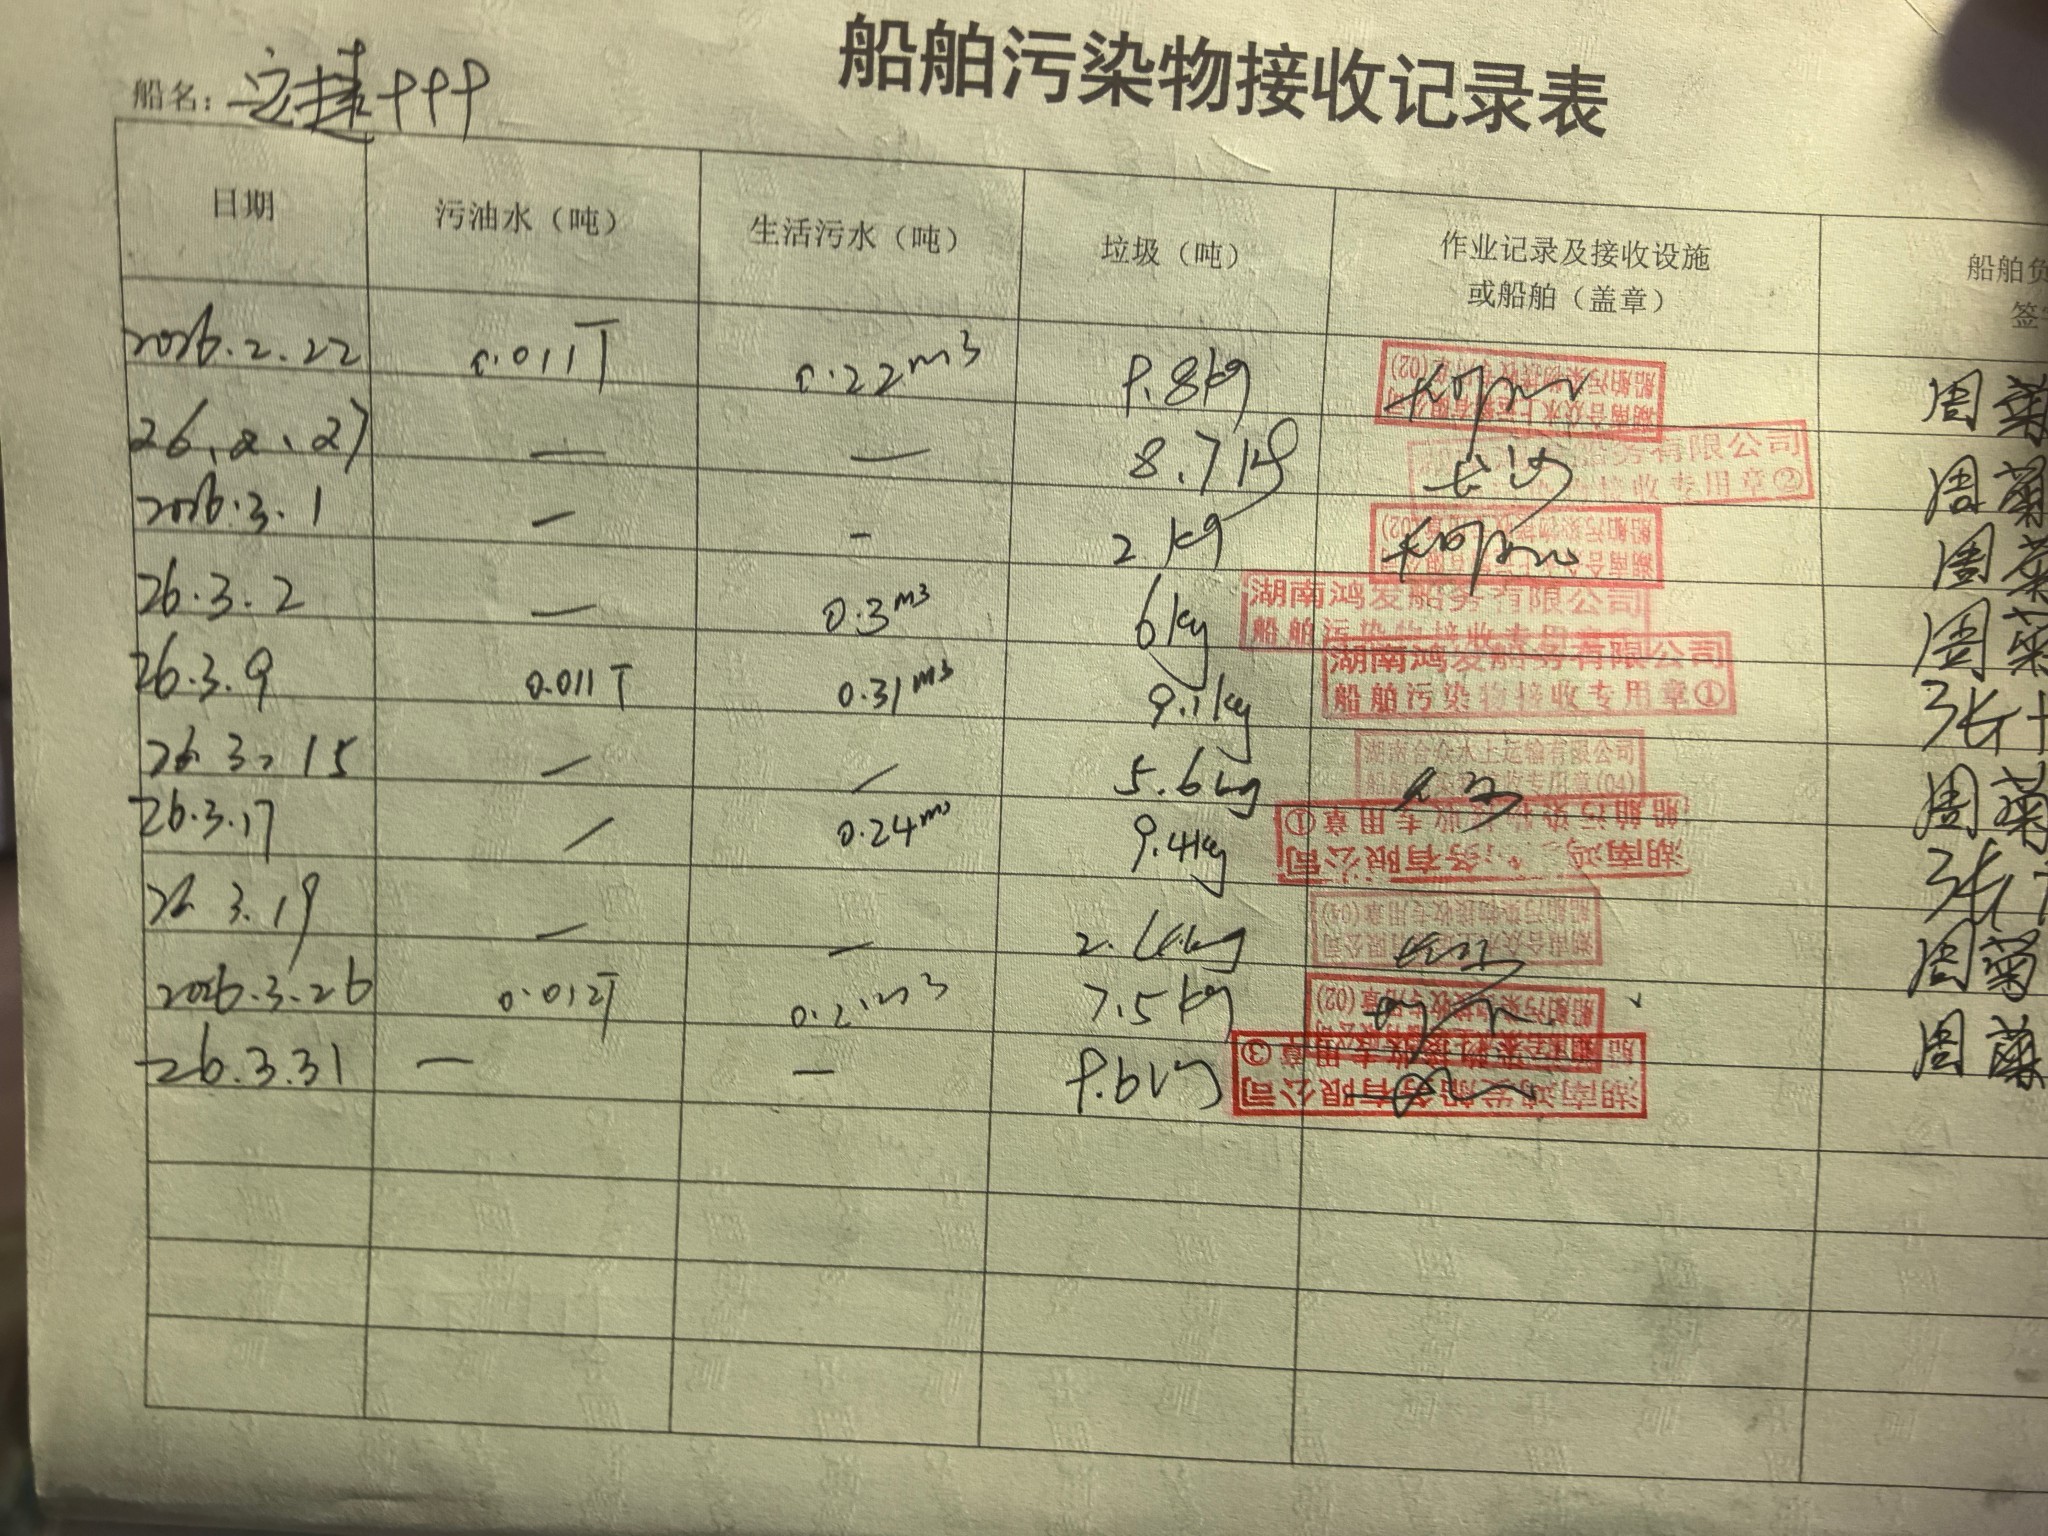 船舶污染物接收记录表
船名：
日期 污油水（吨） 生活污水（吨） 垃圾（吨） 作业记录及接收设施或船舶（盖章） 船舶负 签
2026.2.22 0.011T 0.22m3 9.8kg 湖南合众水上运输有限公司 船舶污染物接收专用章(02) 周菊
26.2.27 — — 8.7kg 船务有限公司 接收专用章② 长沙 周菊
2026.3.1 — - 2kg 船舶污染物接收专用章(02) 周菊
26.3.2 — 0.3m3 6kg 湖南鸿发船务有限公司 船舶污染物接收专用章 周菊
26.3.9 0.011T 0.31m3 9.1kg 湖南鸿发船务有限公司 船舶污染物接收专用章① 张
26.3.15 — / 5.6kg 湖南合众水上运输有限公司 船舶 收专用章(04) 周菊
26.3.17 / 0.24m3 9.4kg 湖南鸿 务有限公司 船舶污染物接收专用章① 张
26.3.19 — — kg 湖南合众水上运输有限公司 船舶污染物接收专用章(04) 周菊
2026.3.26 0.012T m3 7.5kg 船舶污染物接收专用章(02) 周菊
26.3.31 — — 9.6kg 湖南鸿发船务有限公司 船舶污染物接收专用章③